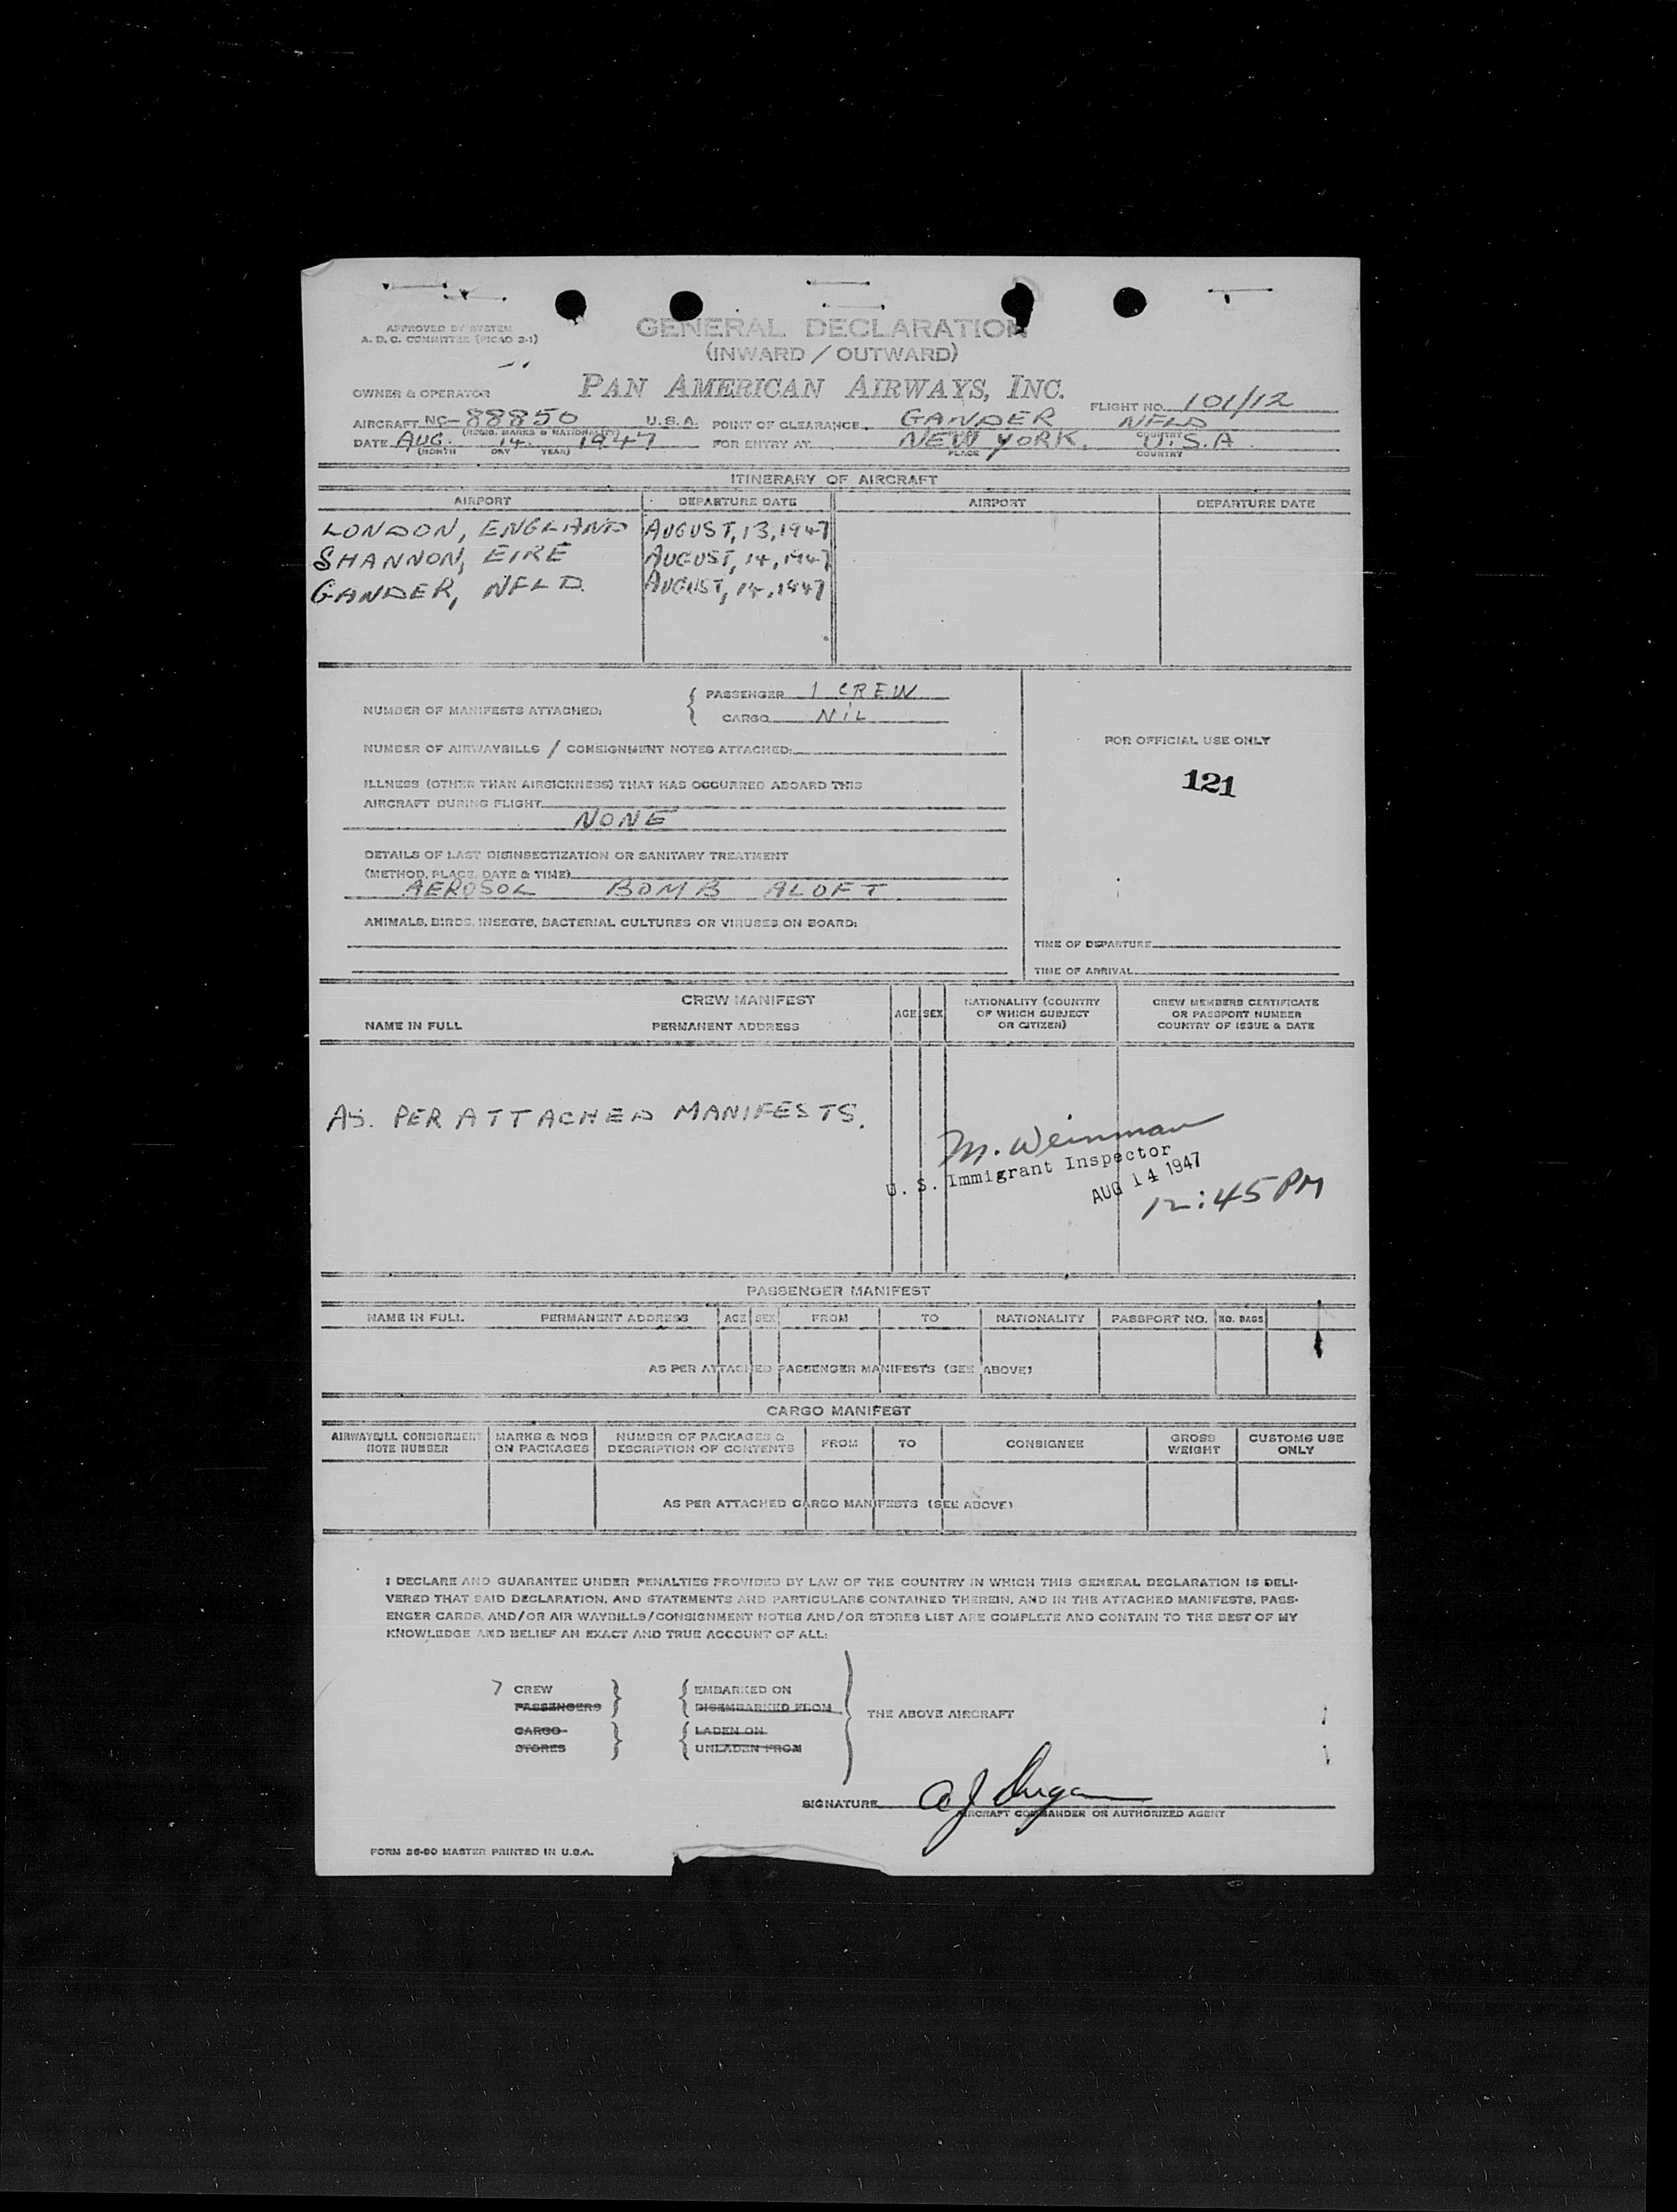 APPROVED BY SYSTEM
A. D. C. COMMITTEE (PICAO 2-1)
GENERAL DECLARATION
(INWARD / OUTWARD)
OWNER & OPERATOR PAN AMERICAN AIRWAYS, INC. FLIGHT NO. 101/12
AIRCRAFT NC-88850 U.S.A. POINT OF CLEARANCE GANDER NFLD
(REGIS. MARKS & NATIONALITY) COUNTRY
DATE AUG. 14. 1947 FOR ENTRY AT NEW YORK, U.S.A.
(MONTH DAY YEAR) PLACE COUNTRY
ITINERARY OF AIRCRAFT
AIRPORT DEPARTURE DATE AIRPORT DEPARTURE DATE
LONDON, ENGLAND AUGUST, 13, 1947
SHANNON, EIRE AUGUST, 14, 1947
GANDER, NFLD. AUGUST, 14, 1947
NUMBER OF MANIFESTS ATTACHED: PASSENGER 1 CREW
CARGO NIL
NUMBER OF AIRWAYBILLS / CONSIGNMENT NOTES ATTACHED:
FOR OFFICIAL USE ONLY
121
ILLNESS (OTHER THAN AIRSICKNESS) THAT HAS OCCURRED ABOARD THIS
AIRCRAFT DURING FLIGHT
NONE
DETAILS OF LAST DISINSECTIZATION OR SANITARY TREATMENT
(METHOD, PLACE, DATE & TIME)
AEROSOL BOMB ALOFT
ANIMALS, BIRDS, INSECTS, BACTERIAL CULTURES OR VIRUSES ON BOARD:
TIME OF DEPARTURE
TIME OF ARRIVAL
CREW MANIFEST
NAME IN FULL PERMANENT ADDRESS AGE SEX NATIONALITY (COUNTRY OF WHICH SUBJECT OR CITIZEN) CREW MEMBERS CERTIFICATE OR PASSPORT NUMBER COUNTRY OF ISSUE & DATE
AS. PER ATTACHED MANIFESTS.
M. Weinman
U. S. Immigrant Inspector
AUG 14 1947
12:45 PM
PASSENGER MANIFEST
NAME IN FULL PERMANENT ADDRESS AGE SEX FROM TO NATIONALITY PASSPORT NO. NO. BAGS
AS PER ATTACHED PASSENGER MANIFESTS (SEE ABOVE)
CARGO MANIFEST
AIRWAYBILL CONSIGNMENT NOTE NUMBER MARKS & NOS ON PACKAGES NUMBER OF PACKAGES & DESCRIPTION OF CONTENTS FROM TO CONSIGNEE GROSS WEIGHT CUSTOMS USE ONLY
AS PER ATTACHED CARGO MANIFESTS (SEE ABOVE)
I DECLARE AND GUARANTEE UNDER PENALTIES PROVIDED BY LAW OF THE COUNTRY IN WHICH THIS GENERAL DECLARATION IS DELI-
VERED THAT SAID DECLARATION, AND STATEMENTS AND PARTICULARS CONTAINED THEREIN, AND IN THE ATTACHED MANIFESTS, PASS-
ENGER CARDS, AND/OR AIR WAYBILLS/CONSIGNMENT NOTES AND/OR STORES LIST ARE COMPLETE AND CONTAIN TO THE BEST OF MY
KNOWLEDGE AND BELIEF AN EXACT AND TRUE ACCOUNT OF ALL:
7 CREW EMBARKED ON
PASSENGERS DISEMBARKED FROM THE ABOVE AIRCRAFT
CARGO LADEN ON
STORES UNLADEN FROM
SIGNATURE A J Dugan
AIRCRAFT COMMANDER OR AUTHORIZED AGENT
FORM 36-80 MASTER PRINTED IN U.S.A.